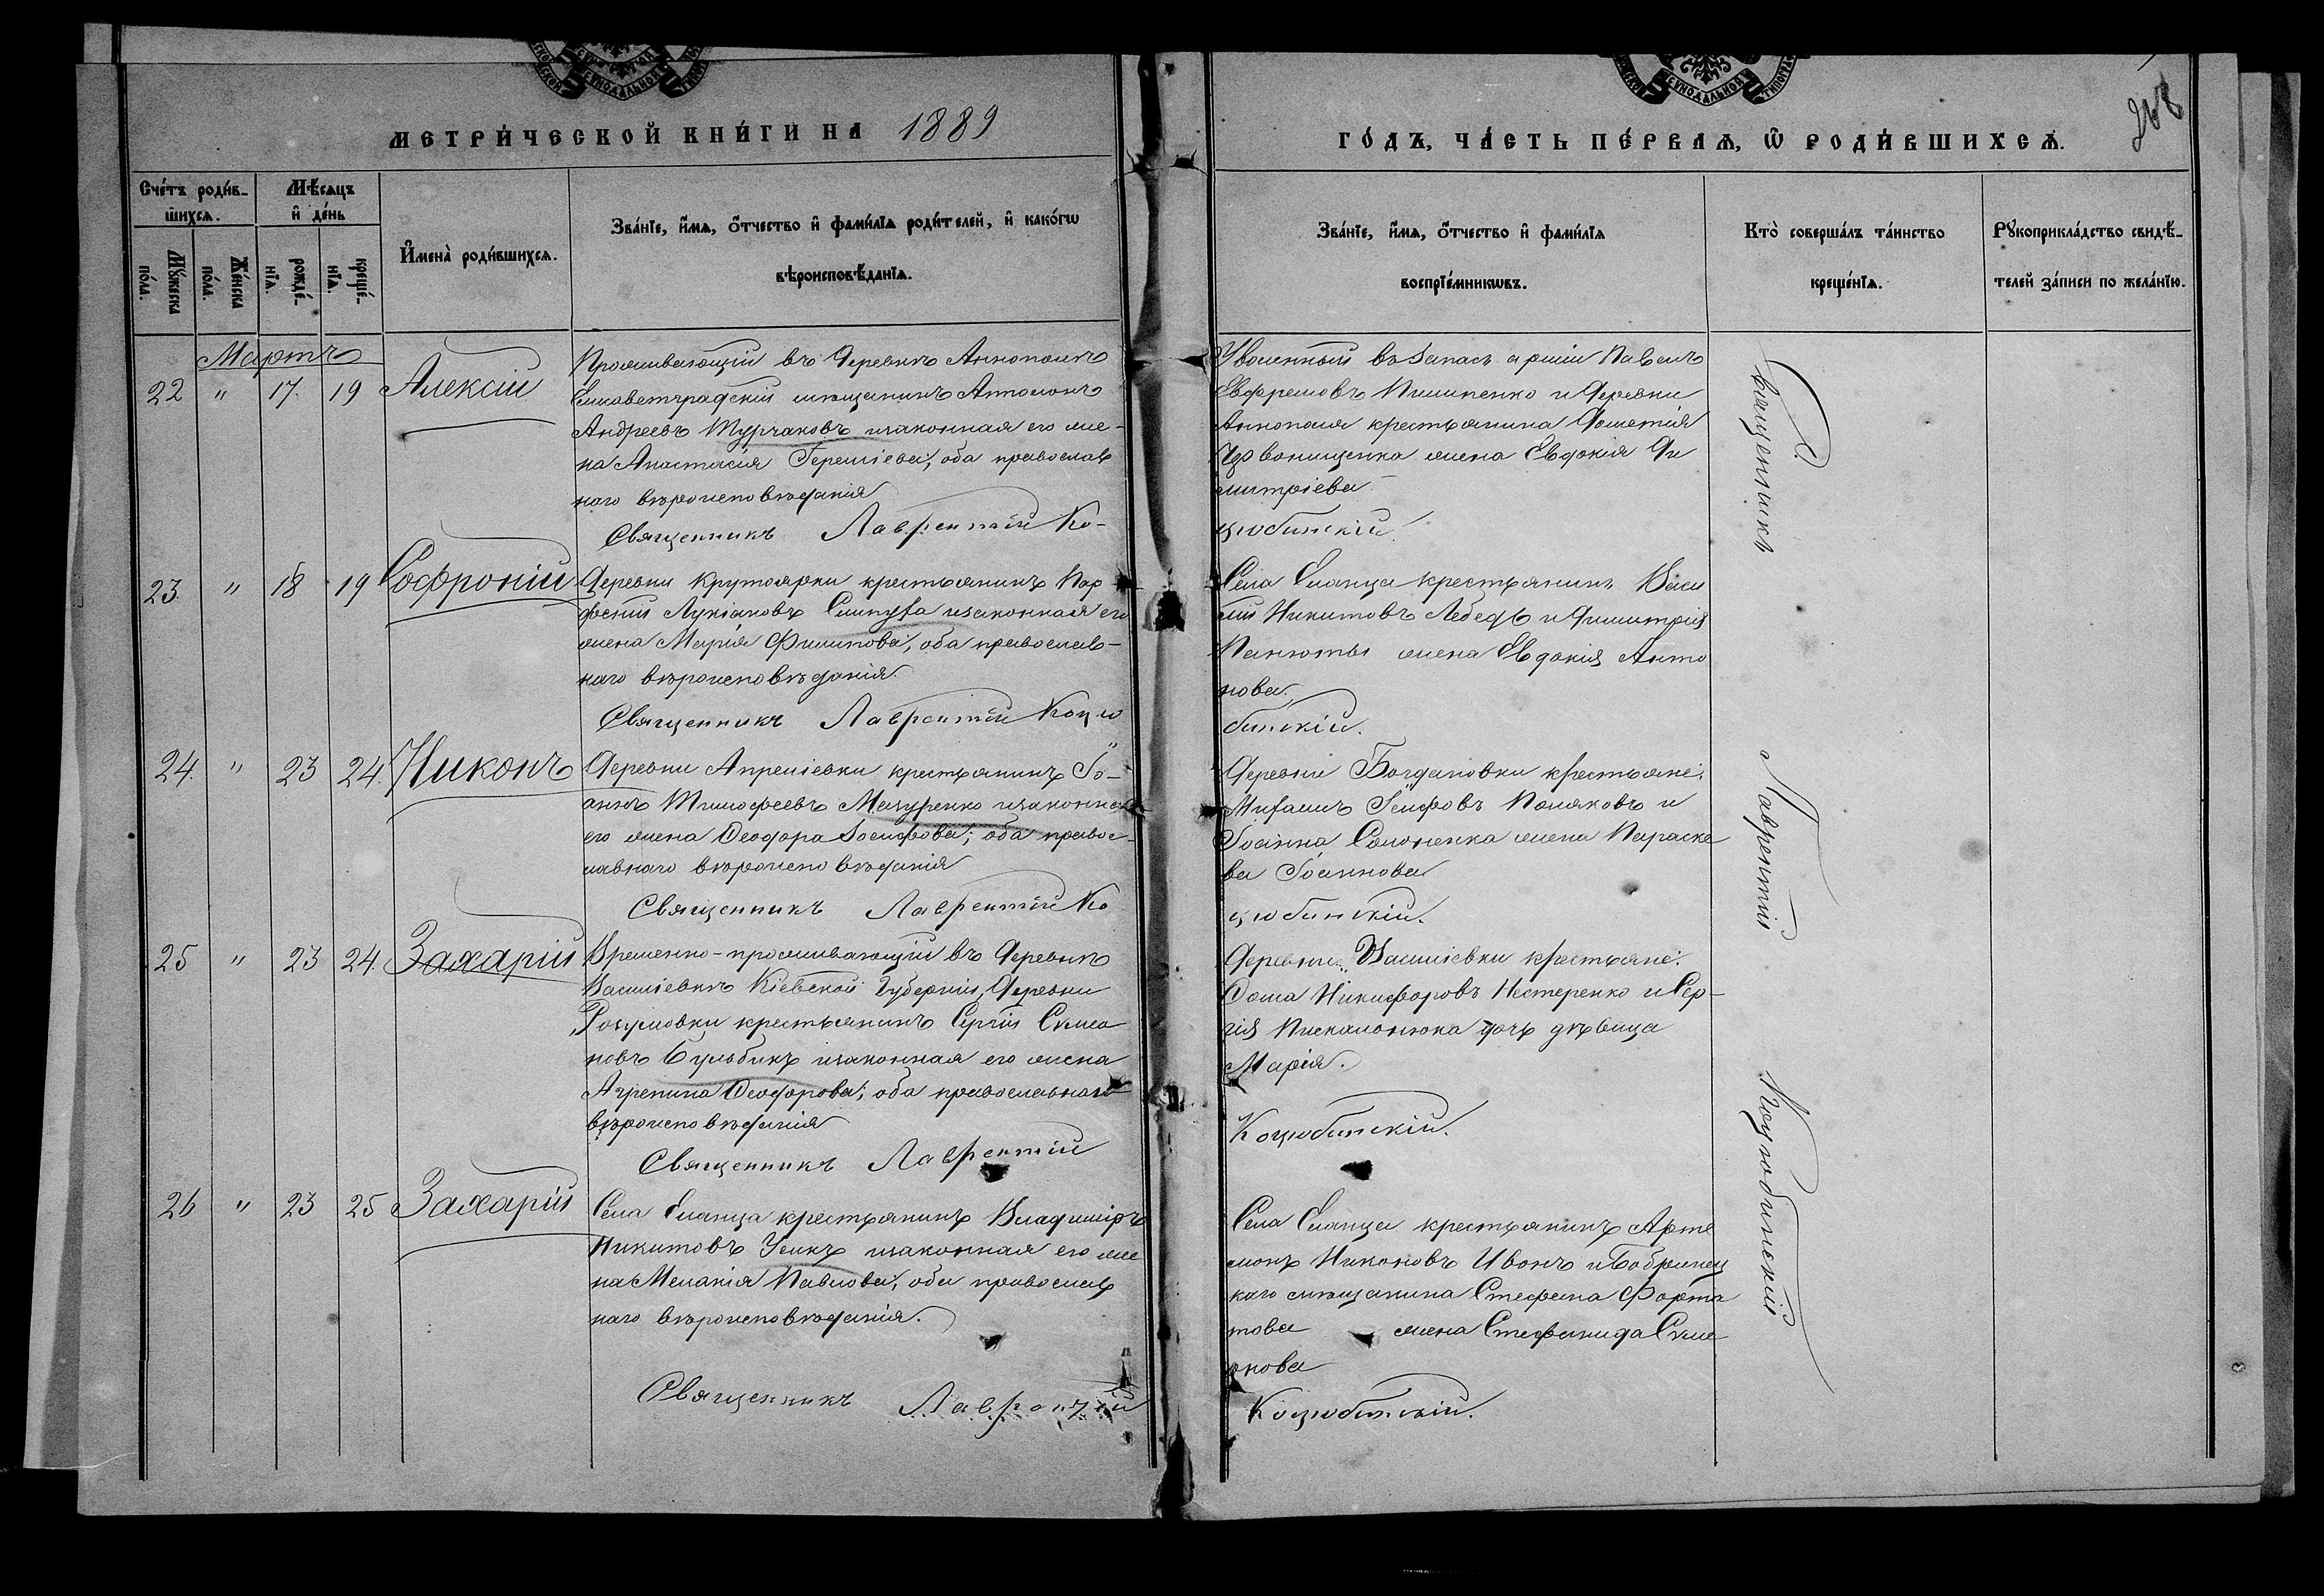 МЕТРИ́ЧЕСКОЙ КНИ́ГИ НА 1889
ГО́ДЪ, ЧА́СТЬ ПЕ́РВАѦ, Ѿ РОДИ́ВШИХСѦ.
208
Сче́тъ роди́в-
шихсѧ.
Мѣ́сѧцъ
и҆ де́нь
Мꙋ́жеска
по́ла.
Же́нска
по́ла.
рожде́-
нїѧ.
креще́-
нїѧ.
И҆мена̀ роди́вшихсѧ.
Зва́нїе, и҆́мѧ, ѻ҆́тчество и҆ фами́лїѧ роди́телей, и҆ како́гѡ
вѣроисповѣ́данїѧ.
Зва́нїе, и҆́мѧ, ѻ҆́тчество и҆ фами́лїѧ
воспрїе́мникѡвъ.
Кто̀ соверша́лъ та́инство
креще́нїѧ.
Рꙋкоприкла́дство свидѣ́-
телей за́писи по жела́нїю.
Мартъ
22 " 17. 19 Алексій
Проживающій въ Деревнѣ Аннополѣ
Елисаветградскій мѣщанинъ Антонъ
Андреевъ Турчаковъ изаконная его же-
на Анастасія Геремiева; оба православ
наго вѣроисповѣданія
Священникъ Лаврентій Ко-
Уволенный въ Запасъ арміи Павелъ
Евфремовъ Пилипенко и Деревни
Аннополя крестьянина Дометія
Дзвонищенка жена Евдокія Ди
митріева
цюбинскій.
23. " 18 19 Софроній
Деревни Крутоярки крестьянинъ Пар
феній Лукіановъ изаконная его
жена Марія Филипова; оба православ-
наго вѣроисповѣданія.
Священникъ Лаврентій Коцю
Села Еланца крестьянинъ Васи
лій Никитовъ Лебедь и Димитрія
Панюты жена Евдокія Анто
нова.
бинскій.
24. " 23 24. Никонъ
Деревни Апреліевки крестьянинъ Іо-
аннъ Тимофеевъ Мазуренко изаконная
его жена Ѳеодора Іосифова; оба правос-
лавнаго вѣроисповѣданія
Священникъ Лаврентій Ко
Деревни Богдановки крестьяне:
Михаилъ Іосифовъ Поляковъ и
Іоанна Соломенка жена Параске
ва Іоаннова
цюбинскій.
25 " 23 24. Захарій
Временно-проживающій въ Деревнѣ
Василіевкѣ Кіевской Губерніи, Деревни
Розумовки крестьянинъ Сергій Симео
новъ Бульбикъ изаконная его жена
Агрепина Ѳеодорова; оба православнаго
вѣроисповѣданія
Священникъ Лаврентій
Деревни Василіевки крестьяне:
Ѳома Никифоровъ Нестеренко и Сер-
гія дочь дѣвица
Марія.
Коцюбинскій.
26 " 23 25 Захарій
Села Еланца крестьянинъ Владиміръ
Никитовъ Усикъ изаконная его же
на Меланія Павлова; оба православ
наго вѣроисповѣданія.
Священникъ Лаврентій
Села Еланца крестьянинъ Арте
монъ Никоновъ Ивонъ и Бобринец
каго мѣщанина Стефана Форта
това жена Стефанида Симе
онова
Коцюбинскій.
Священникъ
Лаврентій
Коцюбинскій